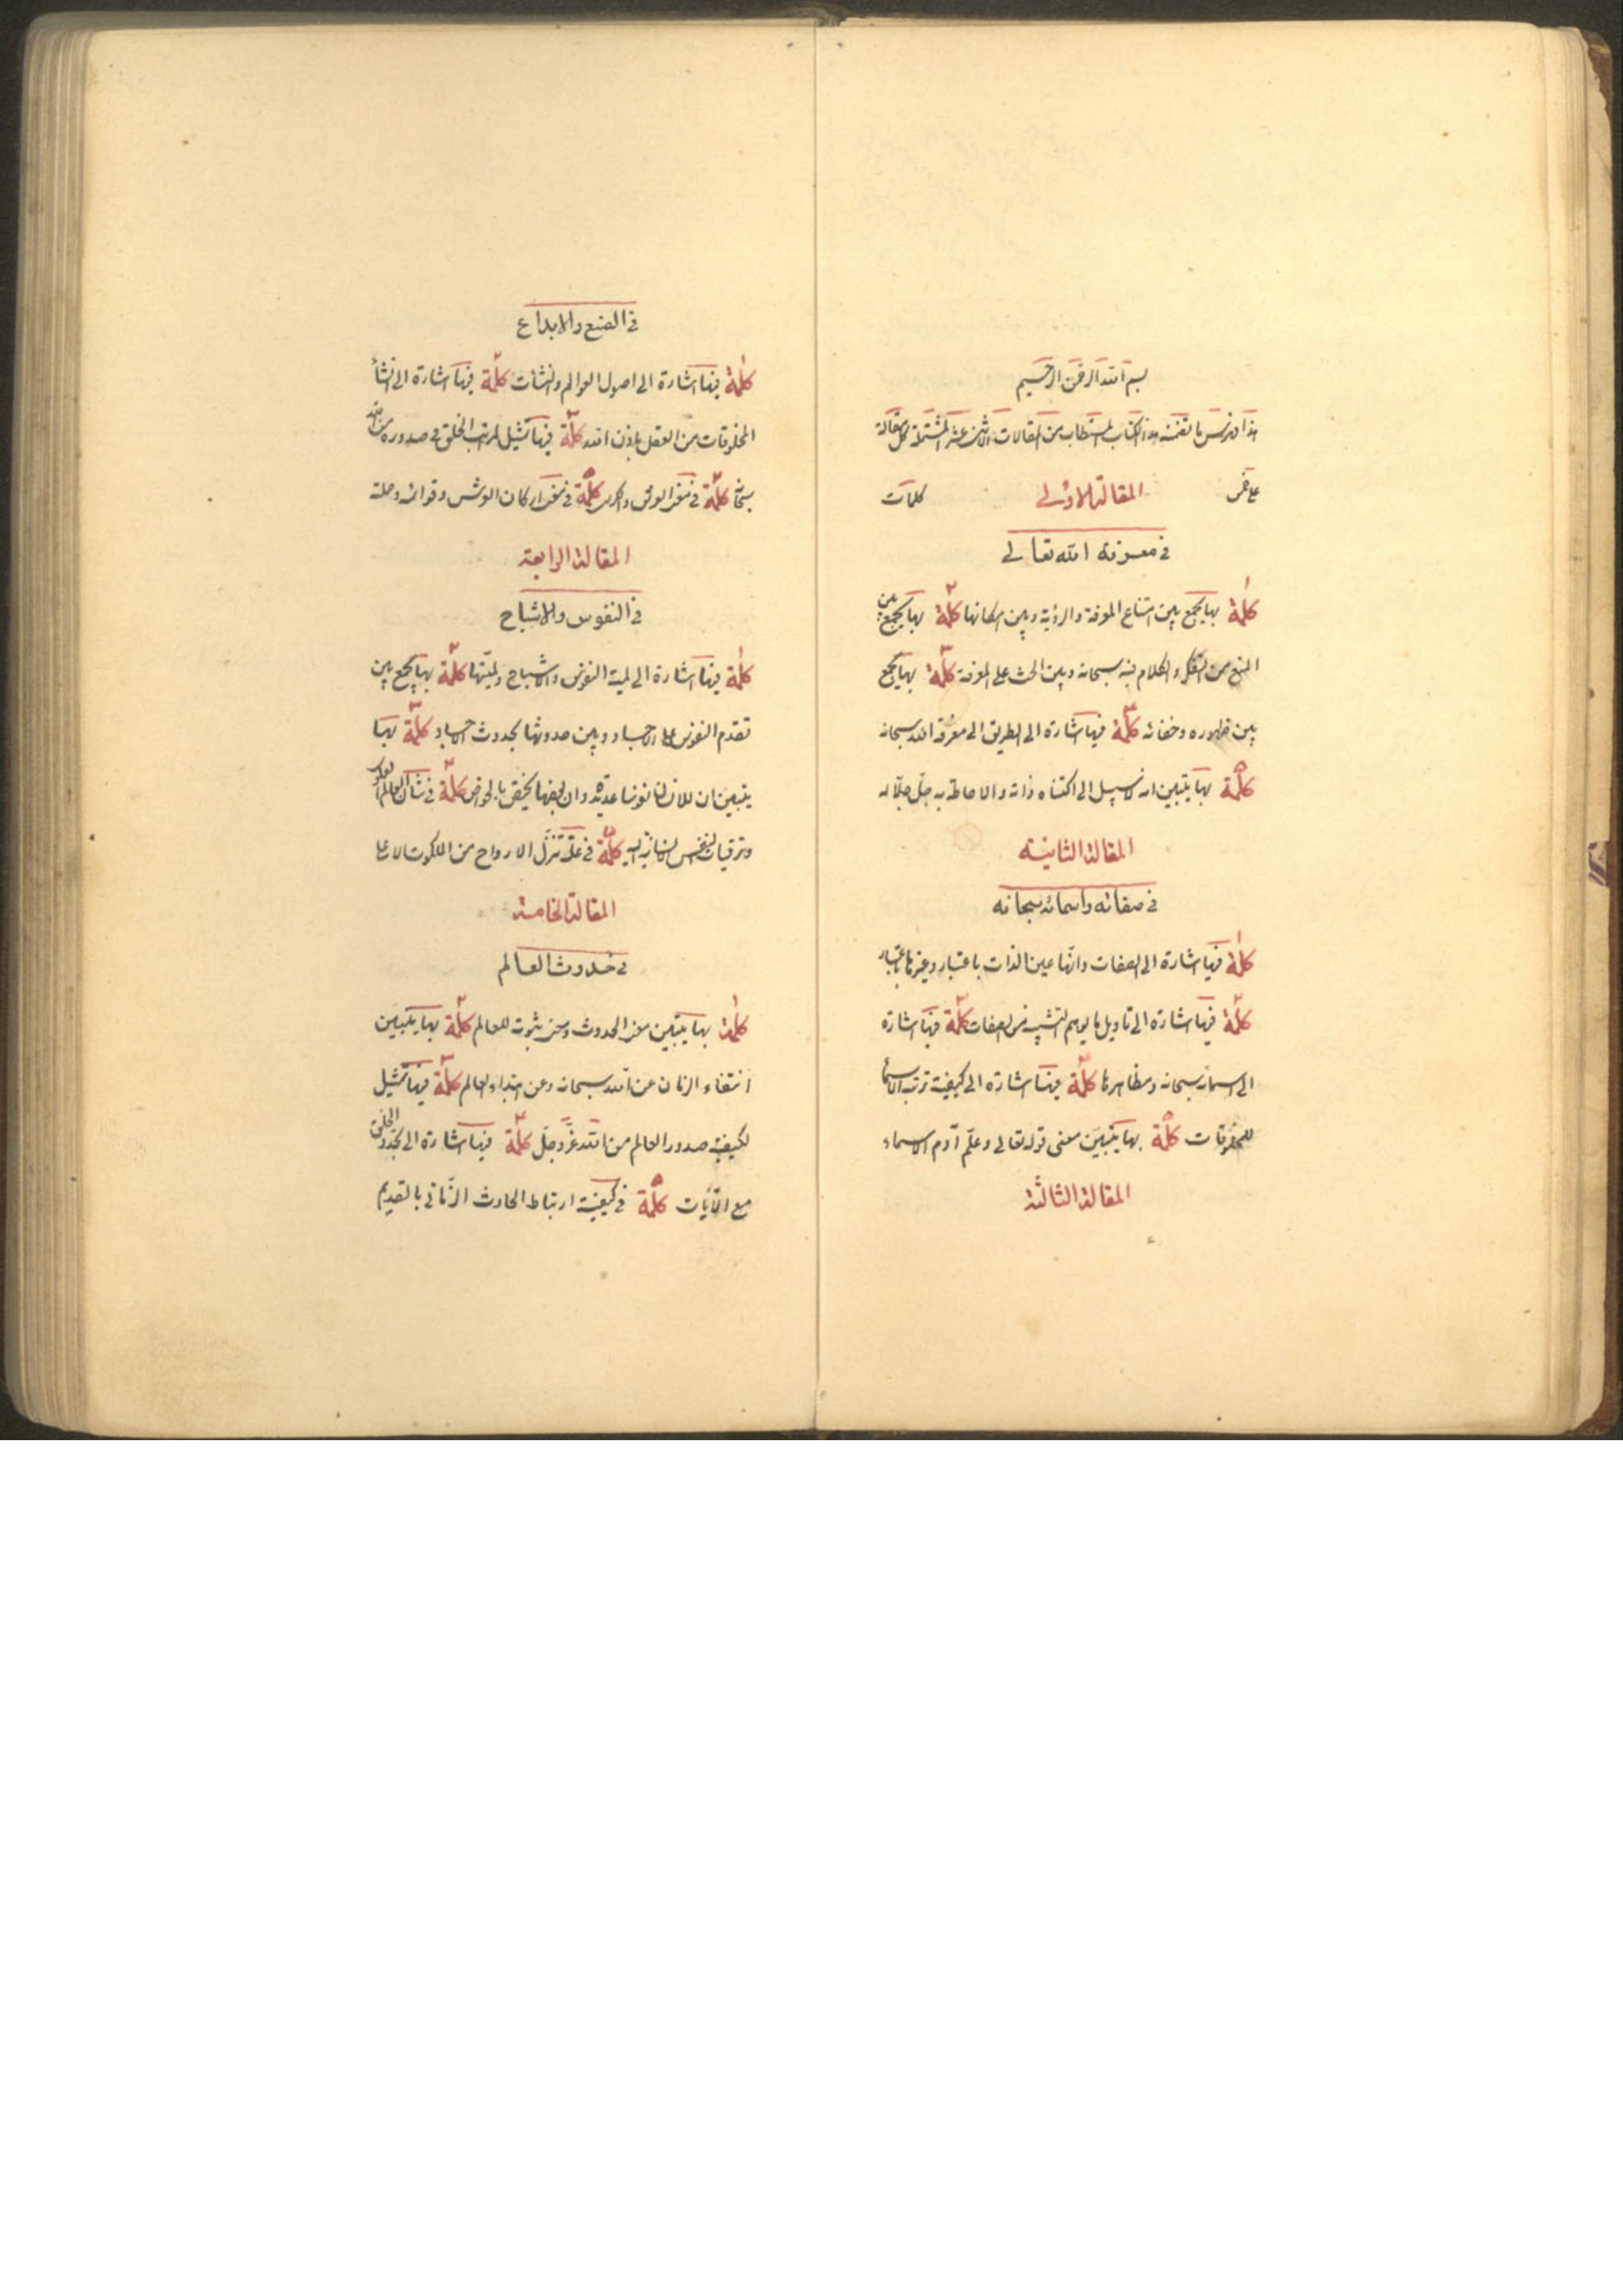 بسم الله الرحمن الرحيم
هذا فهرس ما تضمنه هذا الكتاب المستطاب من المقالات الاثنى عشر المشتملة كل مقالة
على خمس المقالة الاولى كلمات
في معرفة الله تعالى
كلمة بها يجمع بين امتناع المعرفة والرؤية وبين امكانها كلمة بها يجمع بين
المنع من التفكر والكلام فيه سبحانه وبين الحث على المعرفة كلمة بها يجمع
بين ظهوره وخفائه كلمة فيها اشارة الى الطريق الى معرفة الله سبحانه
كلمة بها يتبين ان لا سبيل الى اكتناه ذاته والاحاطة به جل جلاله
المقالة الثانية
في صفاته واسمائه سبحانه
كلمة فيها اشارة الى الصفات وانها عين الذات باعتبار وغيرها باعتبار
كلمة فيها اشارة الى تاويل ما يوهم التشبيه من الصفات كلمة فيها اشارة
الى اسمائه سبحانه ومظاهرها كلمة فيها اشارة الى كيفية ترتب الاسماء
للمخلوقات كلمة بها يتبين معنى قوله تعالى وعلم آدم الاسماء
المقالة الثالثة
في الصنع والابداع
كلمة فيها اشارة الى اصول العوالم والنشآت كلمة فيها اشارة الى انشاء
المخلوقات من العقل باذن الله كلمة فيها تمثيل لمراتب الخلق في صدوره من الله
سبحانه كلمة في معنى العرش والكرسي كلمة في معنى اركان العرش وقوائمه وحملته
المقالة الرابعة
في النفوس والاشباح
كلمة فيها اشارة الى لمية النفوس والاشباح ولميتها كلمة بها يجمع بين
تقدم النفوس على الاجساد وبين حدوثها بحدوث الاجساد كلمة بها
يتبين ان للانسان نفوسا عديدة وان بعضها يختص بالخواص كلمة في نشآت العالم
وترقيات النفس الانسانية اليه كلمة في علة تنزل الارواح من الملكوت الاعلى
المقالة الخامسة
في حدوث العالم
كلمة بها يتبين معنى الحدوث ومعنى ثبوته للعالم كلمة بها يتبين
انتفاء الزمان عن الله سبحانه وعن ابتداء العالم كلمة فيها تمثيل
لكيفية صدور العالم من الله عز وجل كلمة فيها اشارة الى تجدد الخلق
مع الآيات كلمة في كيفية ارتباط الحادث الزماني بالقديم